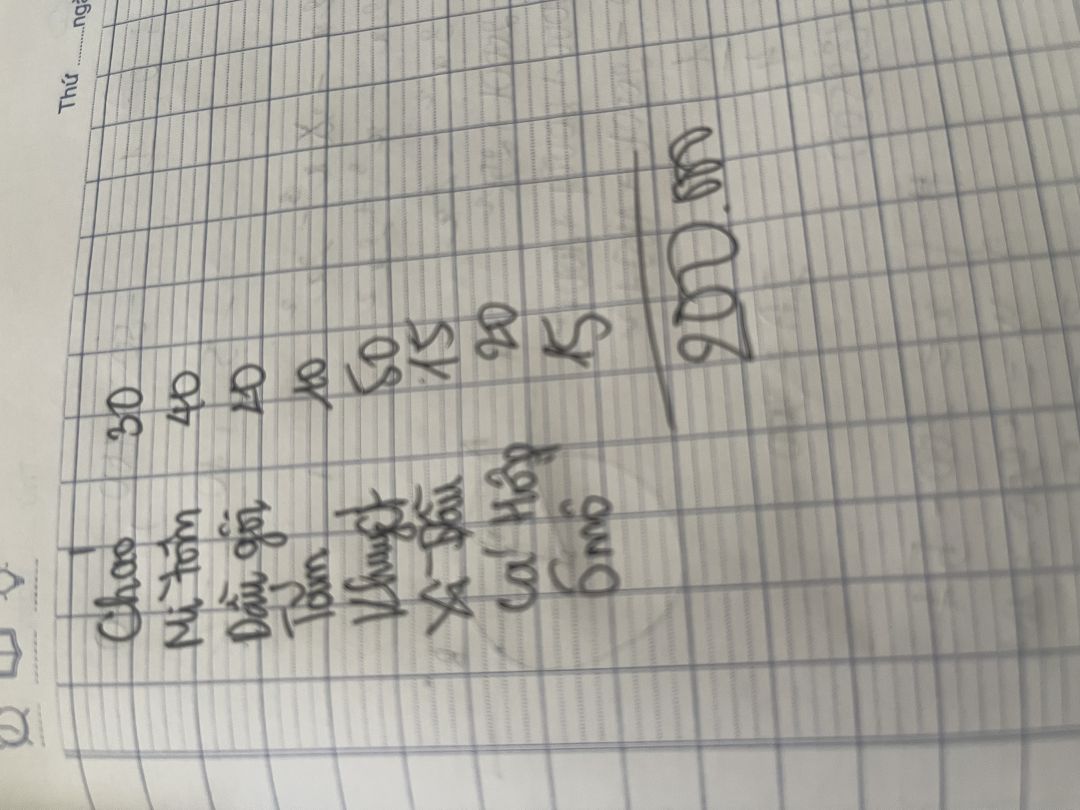 Thứ ........ngà
Cháo 30
Mì tôm 40
Dầu gội 20
Tăm 10
Khuyết 50
Xì Dầu 15
Cá Hộp 20
Ômô 15
200.000